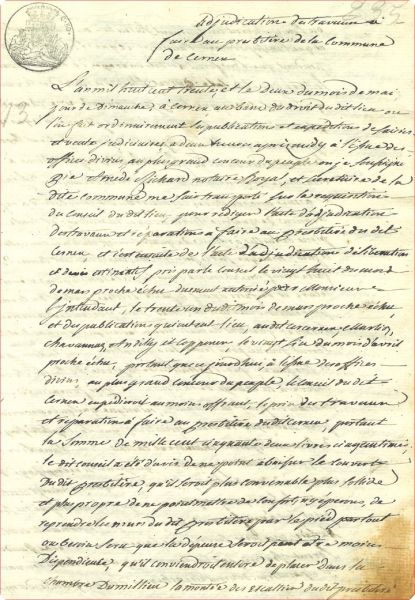 adjudication des travaux à
faire au presbitère de la Commune
de Cernex
L'an mil huit cent trente et le deux du mois de mai
jour de Dimanche à Cernex, au banc du Droit du dit lieu ou
l'on fait ordinairement les publications et expéditions de saisies
et vente judiciaires, à deux heures après midy à l'issue des
offices divins au plus grand concour du peuple ou je soussigné
Richard notaire Royal, et secrétaire de la
dite commune me suis transporté sur la réquisition
du Conseil du dit lieu, pour rédiger l'acte d'adjudication
des travaux et réparations à faire au presbitère du dit
Cernex, et ensuite de l'acte d'adjudication délibération
et devis estimatif pris par le conseil le vingt huit du mois
de mars proche échu dument autorisé par Monsieur
l'Intendant, le trente un du dit mois de mars proche échu
et des publications qui ont eu lieu, au dit Cernex Marlioz,
Chavannaz, Andilly et Copponex, le vingt cinq du mois d'avril
proche échu, portant que ce jourdhui, à l'issue des offices
divins au plus grand concour du peuple, le Conseil du dit
Cernex expédiroit au moins offrant, le prix des travaux
et réparation à faire au presbitère du dit Cernex, portant
la somme de mille cent cinquante deux livres cinq centimes
le dit conseil a été d'avis de ne point abaisser le couvert
du dit presbitère, qu'il seroit plus convenable plus solide
et plus propre de ne point mettre de, de
reprendre les murs du dit Presbitère par le pied partout
ou besoin sera que la dépense seroit peut être moins
Dispendieuse, qu'il conviendroit encore de placer dans la
chambre du milieu la montée des escalliers du dit presbitère